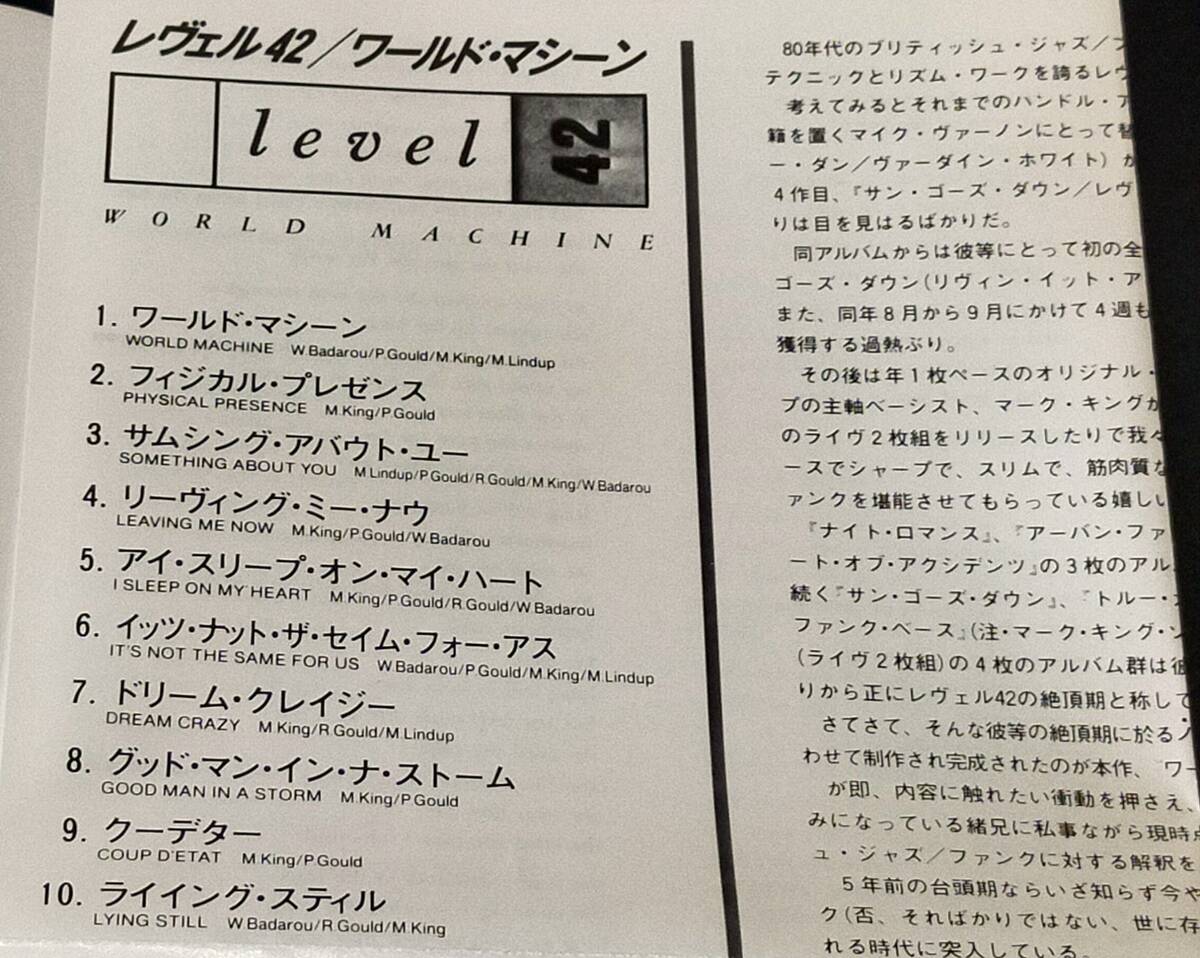 レヴェル42／ワールド・マシーン
level 42
WORLD MACHINE
1. ワールド・マシーン
WORLD MACHINE W.Badarou/P.Gould/M.King/M.Lindup
2. フィジカル・プレゼンス
PHYSICAL PRESENCE M.King/P.Gould
3. サムシング・アバウト・ユー
SOMETHING ABOUT YOU M.Lindup/P.Gould/R.Gould/M.King/W.Badarou
4. リーヴィング・ミー・ナウ
LEAVING ME NOW M.King/P.Gould/W.Badarou
5. アイ・スリープ・オン・マイ・ハート
I SLEEP ON MY HEART M.King/P.Gould/R.Gould/W.Badarou
6. イッツ・ナット・ザ・セイム・フォー・アス
IT'S NOT THE SAME FOR US W.Badarou/P.Gould/M.King/M.Lindup
7. ドリーム・クレイジー
DREAM CRAZY M.King/R.Gould/M.Lindup
8. グッド・マン・イン・ナ・ストーム
GOOD MAN IN A STORM M.King/P.Gould
9. クーデター
COUP D'ETAT M.King/P.Gould
10. ライイング・スティル
LYING STILL W.Badarou/R.Gould/M.King
80年代のブリティッシュ・ジャズ／フ
テクニックとリズム・ワークを誇るレヴ
考えてみるとそれまでのハンドル・ア
籍を置くマイク・ヴァーノンにとって替
ー・ダン／ヴァーダイン・ホワイト）が
4作目、『サン・ゴーズ・ダウン／レヴ
りは目を見はるばかりだ。
同アルバムからは彼等にとって初の全
ゴーズ・ダウン（リヴィン・イット・ア
また、同年8月から9月にかけて4週も
獲得する過熱ぶり。
その後は年1枚ペースのオリジナル・
プの主軸ベーシスト、マーク・キングが
のライヴ2枚組をリリースしたりで我々
ースでシャープで、スリムで、筋肉質な
ァンクを堪能させてもらっている嬉しい
『ナイト・ロマンス』、『アーバン・ファ
ート・オブ・アクシデンツ』の3枚のアル
続く『サン・ゴーズ・ダウン』、『トルー・
ファンク・ベース』（注・マーク・キング・ソ
（ライヴ2枚組）の4枚のアルバム群は彼
りから正にレヴェル42の絶頂期と称して
さてさて、そんな彼等の絶頂期に於るノ
わせて制作され完成されたのが本作、ワー
が即、内容に触れたい衝動を押さえ、
みになっている緒兄に私事ながら現時点
ュ・ジャズ／ファンクに対する解釈を
5年前の台頭期ならいざ知らず今や
ク（否、そればかりではない、世に存
れる時代に突入している。